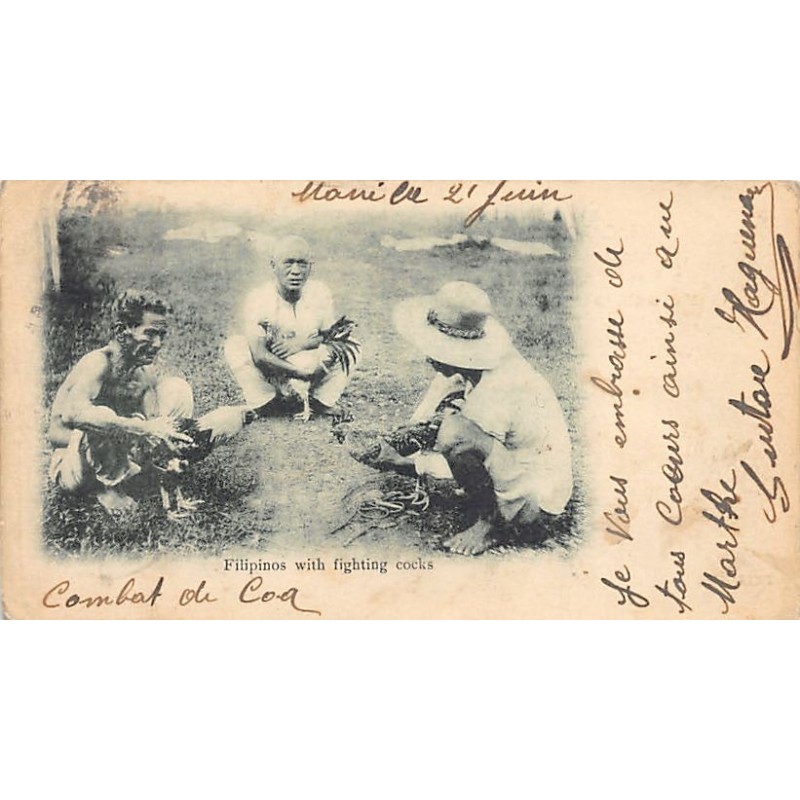 Manille 21 Juin
Filipinos with fighting cocks
Combat de Coq
Je Vous embrasse de
tous Coeurs ainsi que
Marthe
Gustave Haguenau